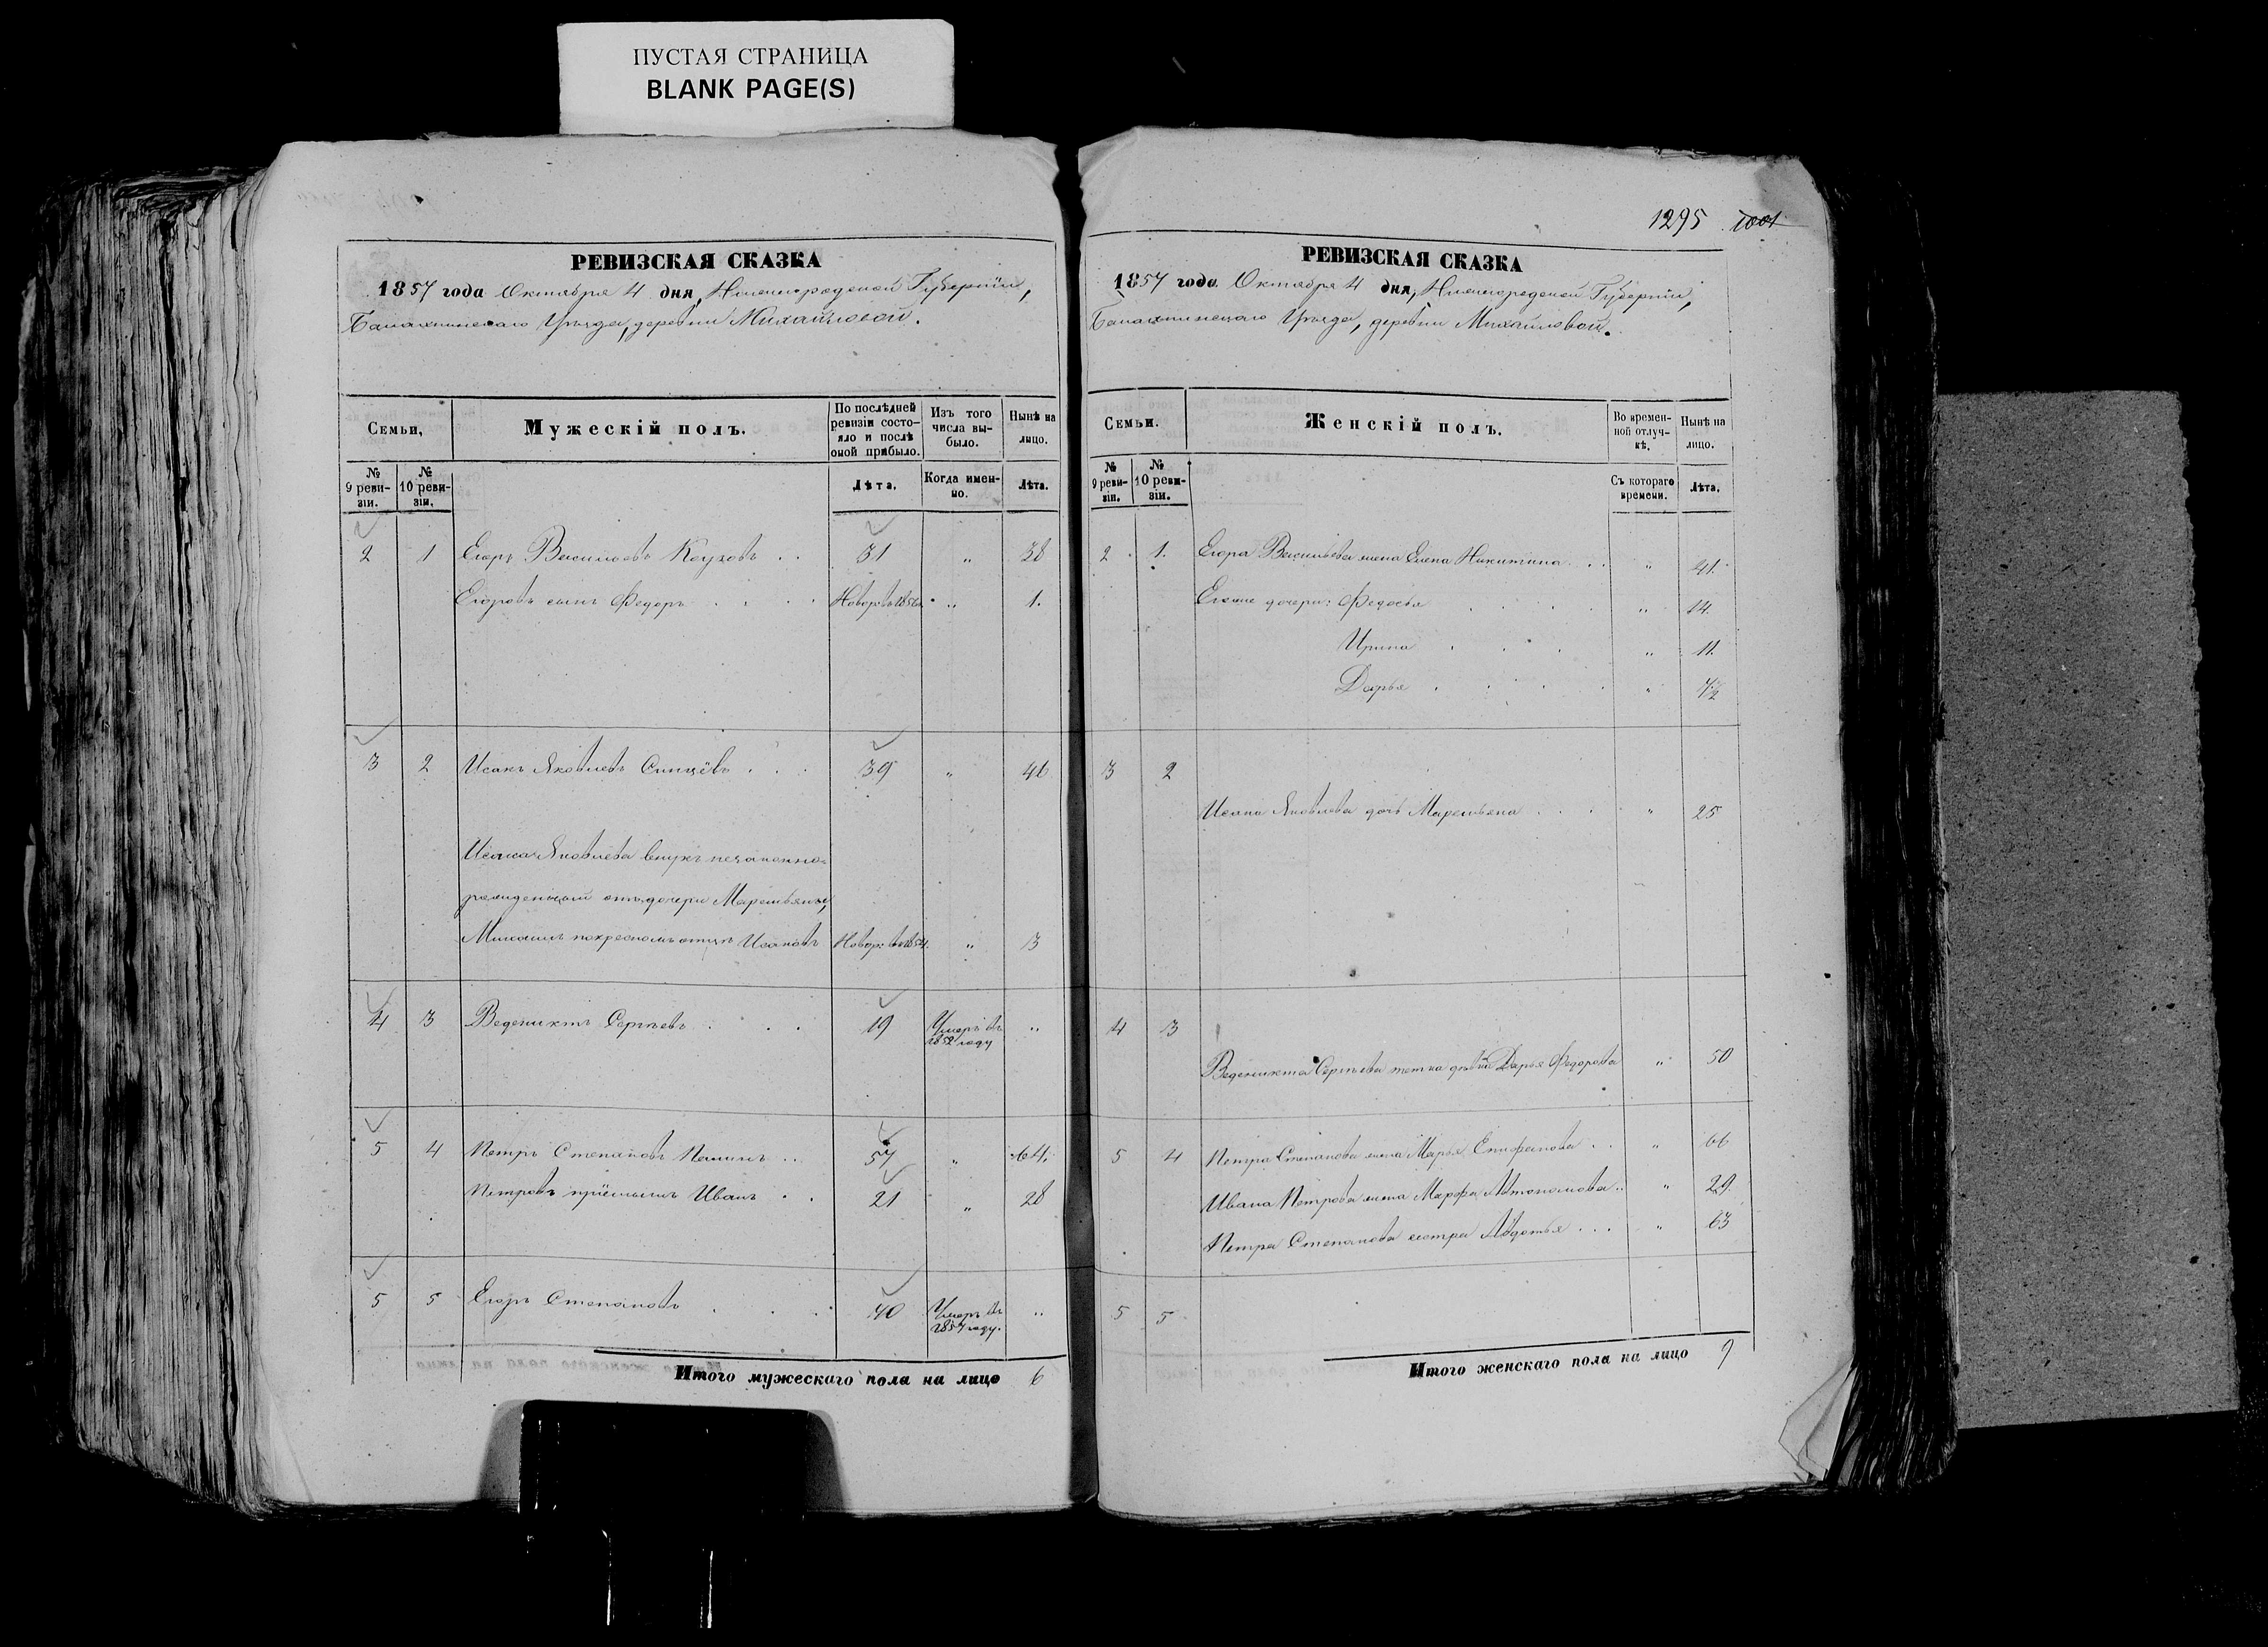 ПУСТАЯ СТРАНИЦА
BLANK PAGE(S)
РЕВИЗСКАЯ СКАЗКА
1857 года Октября 4 дня, Нижегородской Губерніи,
Балахнинскаго Уѣзда, деревни Михайловой.
Семьи,
Мужескій полъ.
По послѣдней ревизіи состо-
яло и послѣ
оной прибыло.
Изъ того
числа вы-
было.
Нынѣ на
лицо.
№
9 реви-
зіи.
№
10 реви-
зіи.
Лѣта.
Когда имен-
но.
Лѣта.
2 1 Егоръ Васильевъ . . 31 " 38
Егоровъ сынъ Федоръ . . . . Новорж въ 1856 . " 1.
3 2 Исакъ Яковлевъ . . . 39 " 46
Исака Яковлева внукъ незаконно=
рожденный отъ дочери Маремьяны,
по крестномъ отцѣ Исаковъ Новорж въ 1854. " 3
4 3 Веденихтъ Сергѣевъ . . . 19 Умеръ въ
1852 году "
5 4 Петръ Степановъ . . 57 " 64.
Петровъ пріемышъ Иванъ . . 21 " 28
5 5 Егоръ Степановъ . . . 40 Умеръ въ
1857 году. "
Итого мужескаго пола на лицо 6
1295 1001
РЕВИЗСКАЯ СКАЗКА
1857 года Октября 4 дня, Нижегородской Губерніи,
Балахнинскаго Уѣзда, деревни Михайловой.
Семьи.
Женскій полъ.
Во времен-
ной отлуч-
кѣ.
Нынѣ на
лицо.
№
9 реви-
зіи.
№
10 реви-
зіи.
Съ котораго
времени.
Лѣта.
2 . 1. Егора Васильева жена Елена Никитина . . " 41.
Егожие дочери: Федосья . . . . " 14.
Ирина . . . " 11.
Дарья . . . . . " 7½
3 2
Исака Яковлева дочь Маремьяна . . . " 25
4 3
Веденихта Сергѣева тетка дѣвка Дарья Федорова " 50
5 4 Петра Степанова жена Марья Епифанова . . " 66
Ивана Петрова жена Марфа Автономова .. " 29.
Петра Степанова сестра Авдотья . . . " 63
5 5
Итого женскаго пола на лицо 9